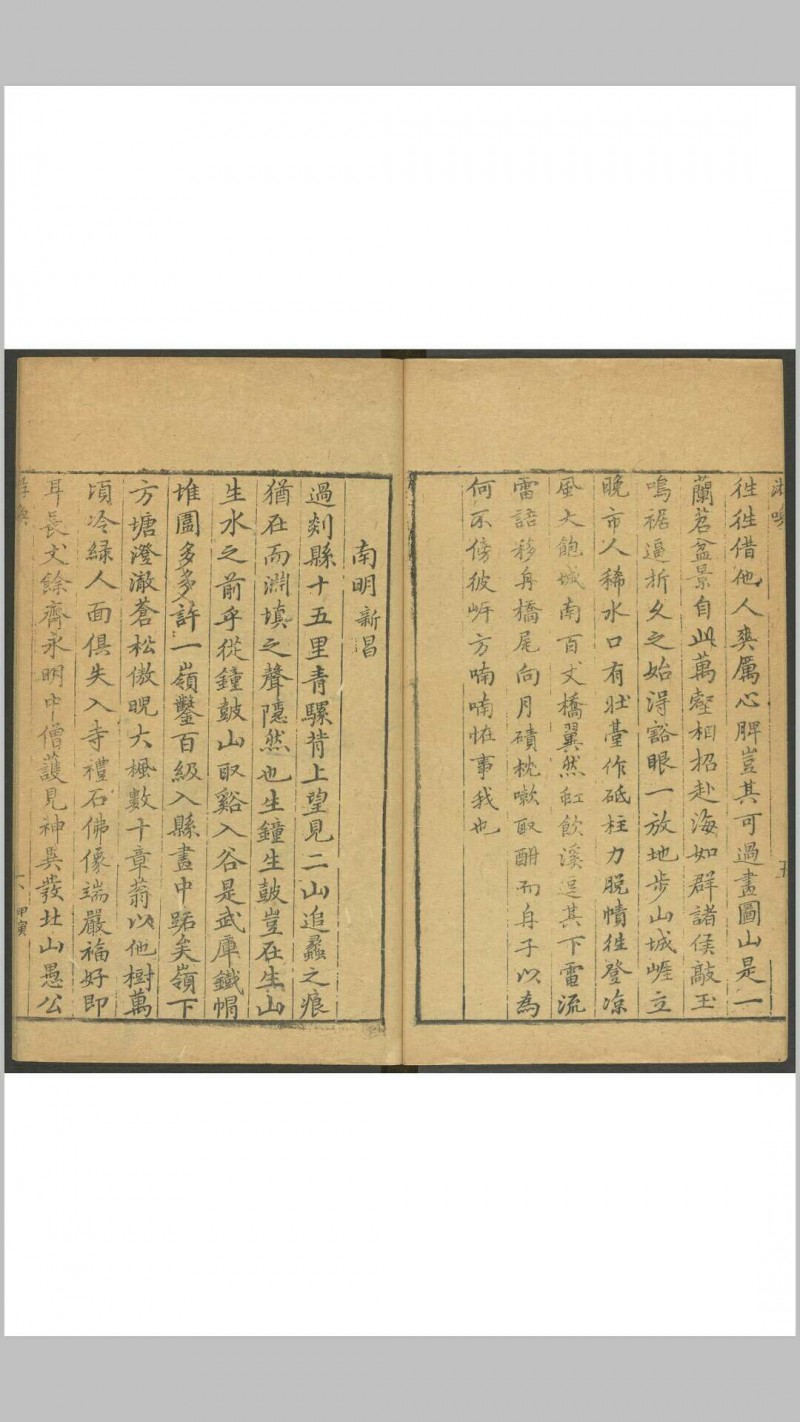 往往借他人爽厲心脾豈其可過畫圖山是一
蘭苕盆景自此萬壑相招赴海如群諸侯敲玉
鳴裾逼折久之始得豁眼一放地步山城崕立
晚市人稀水口有壯臺作砥柱力脫幘徃登凉
風大飽城南百丈橋翼然虹飲溪逗其下電流
雷語移舟橋尾向月磧枕嗽取酣而舟子以為
何不傍彼岍方喃喃恠事我也
南明 新昌
過剡縣十五里青騾背上望見二山追蠡之痕
猶在而淵填之聲隱然也生鐘生皷豈在生山
生水之前乎從鐘皷山取谿入谷是武庫鐵帽
堆圓多多許一嶺鑿百級入縣畫中踞矣嶺下
方塘澄澈蒼松傲睨大楓數十章蓊以他樹萬
頃冷綠人面俱失入寺禮石佛像端嚴福好即
耳長丈餘齊永明中僧護見神異發北山愚公
甲寅